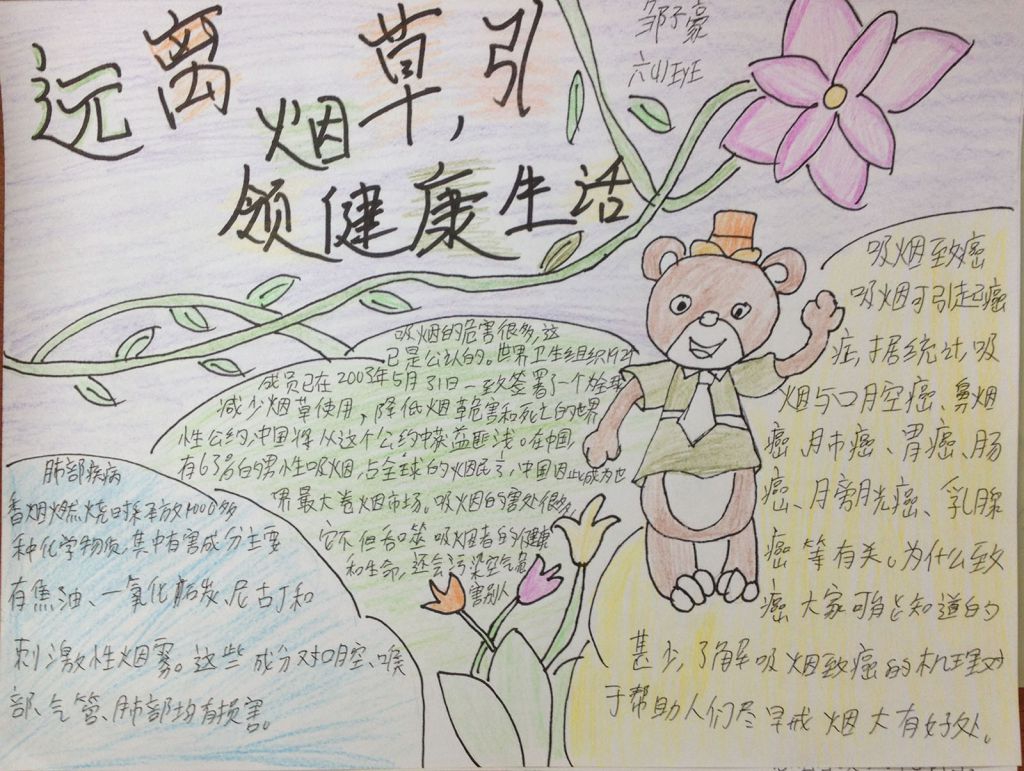 远离烟草,引
领健康生活
邹子豪
六(4)班
吸烟的危害很多,这
已是公认的。世界卫生组织192个
成员已在2003年5月31日一致签署了一个
减少烟草使用,降低烟草危害和死亡的世界
性公约,中国将从这个公约中获益匪浅。在中国,
有63%的男性吸烟,占全球的烟民,中国因此成为世
界最大卷烟市场。吸烟的害处很多,
它不但吞噬吸烟者的健康
和生命,还会污染空气,危
害别人
肺部疾病
香烟燃烧时释放4000多
种化学物质,其中有害成分主要
有焦油、一氧化碳、尼古丁和
刺激性烟雾。这些成分对口腔、喉
部、气管、肺部均有损害。
吸烟致癌
吸烟可引起癌
症,据统计,吸
烟与口腔癌、鼻烟
癌、肺癌、胃癌、肠
癌、膀胱癌、乳腺
癌等有关。为什么致
癌大家可能知道的
甚少,了解吸烟致癌的机理对
于帮助人们尽早戒烟大有好处。